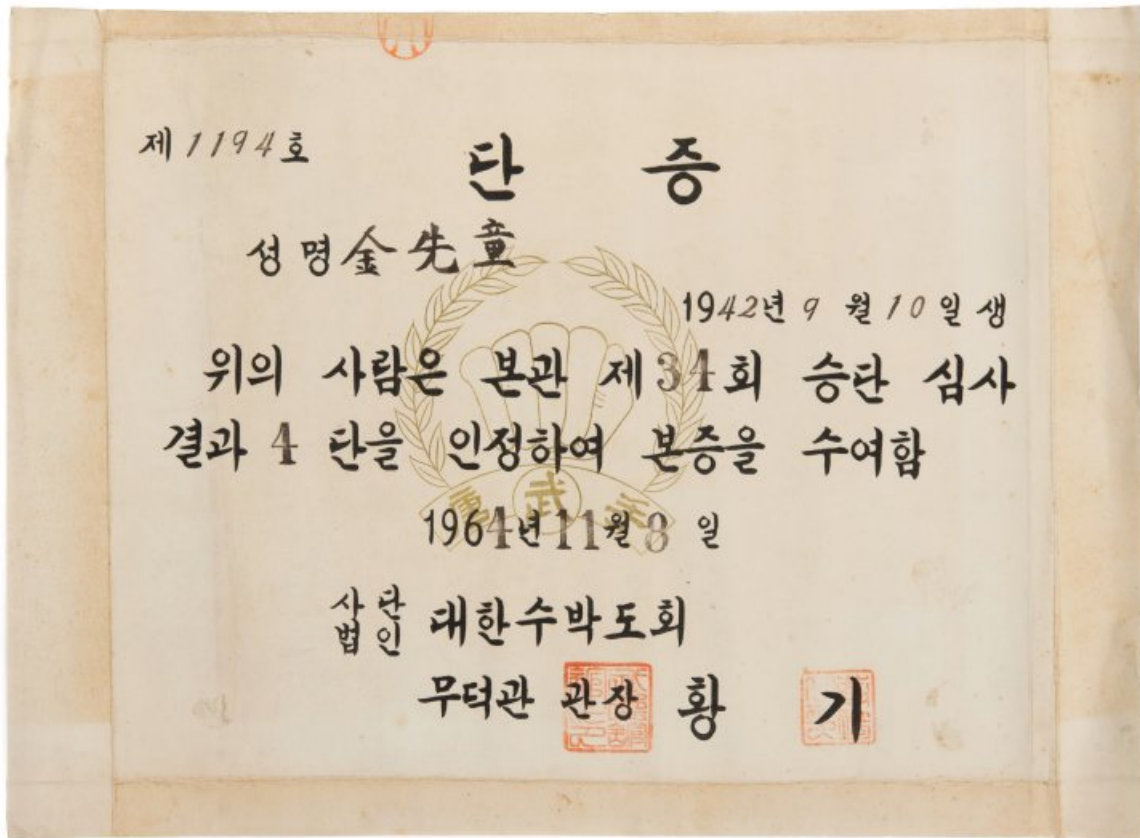 제 1194 호
단 증
성명 金先童
1942년 9 월 10 일 생
위의 사람은 본관 제 34 회 승단 심사
결과 4 단을 인정하여 본증을 수여함
1964년 11월 8 일
사단
법인 대한수박도회
무덕관 관장 황 기